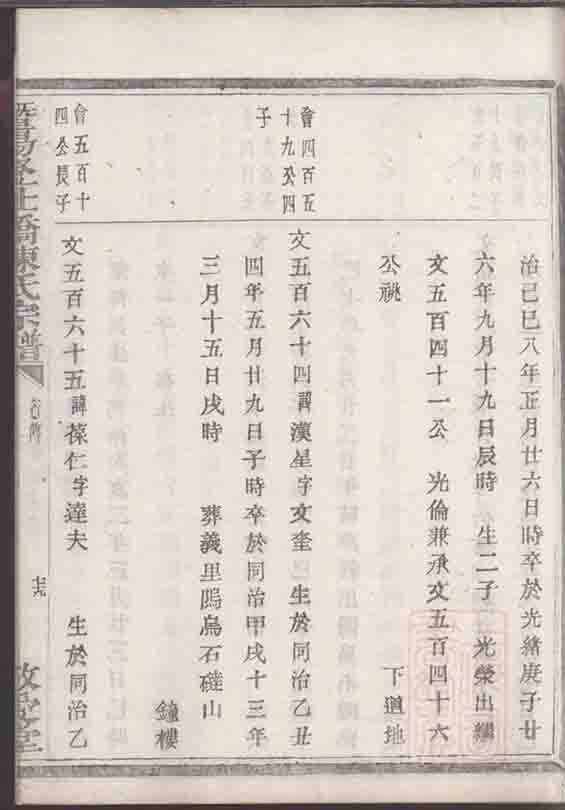 治己巳八年正月廿六日時卒於光緒庚子廿
六年九月十九日辰時 生二子光榮出繼
文五百四十一公 光倫兼承文五百四十六
公祧 下道地
會四百五
十九公四
子
文五百六十四諱漢星字文奎 生於同治乙丑
四年五月廿九日子時卒於同治甲戌十三年
三月十五日戌時 葬義里隖烏石磓山
鐘樓
會五百十
四公長子
文五百六十五諱葆仁字達夫 生於同治乙
橋陳氏宗譜